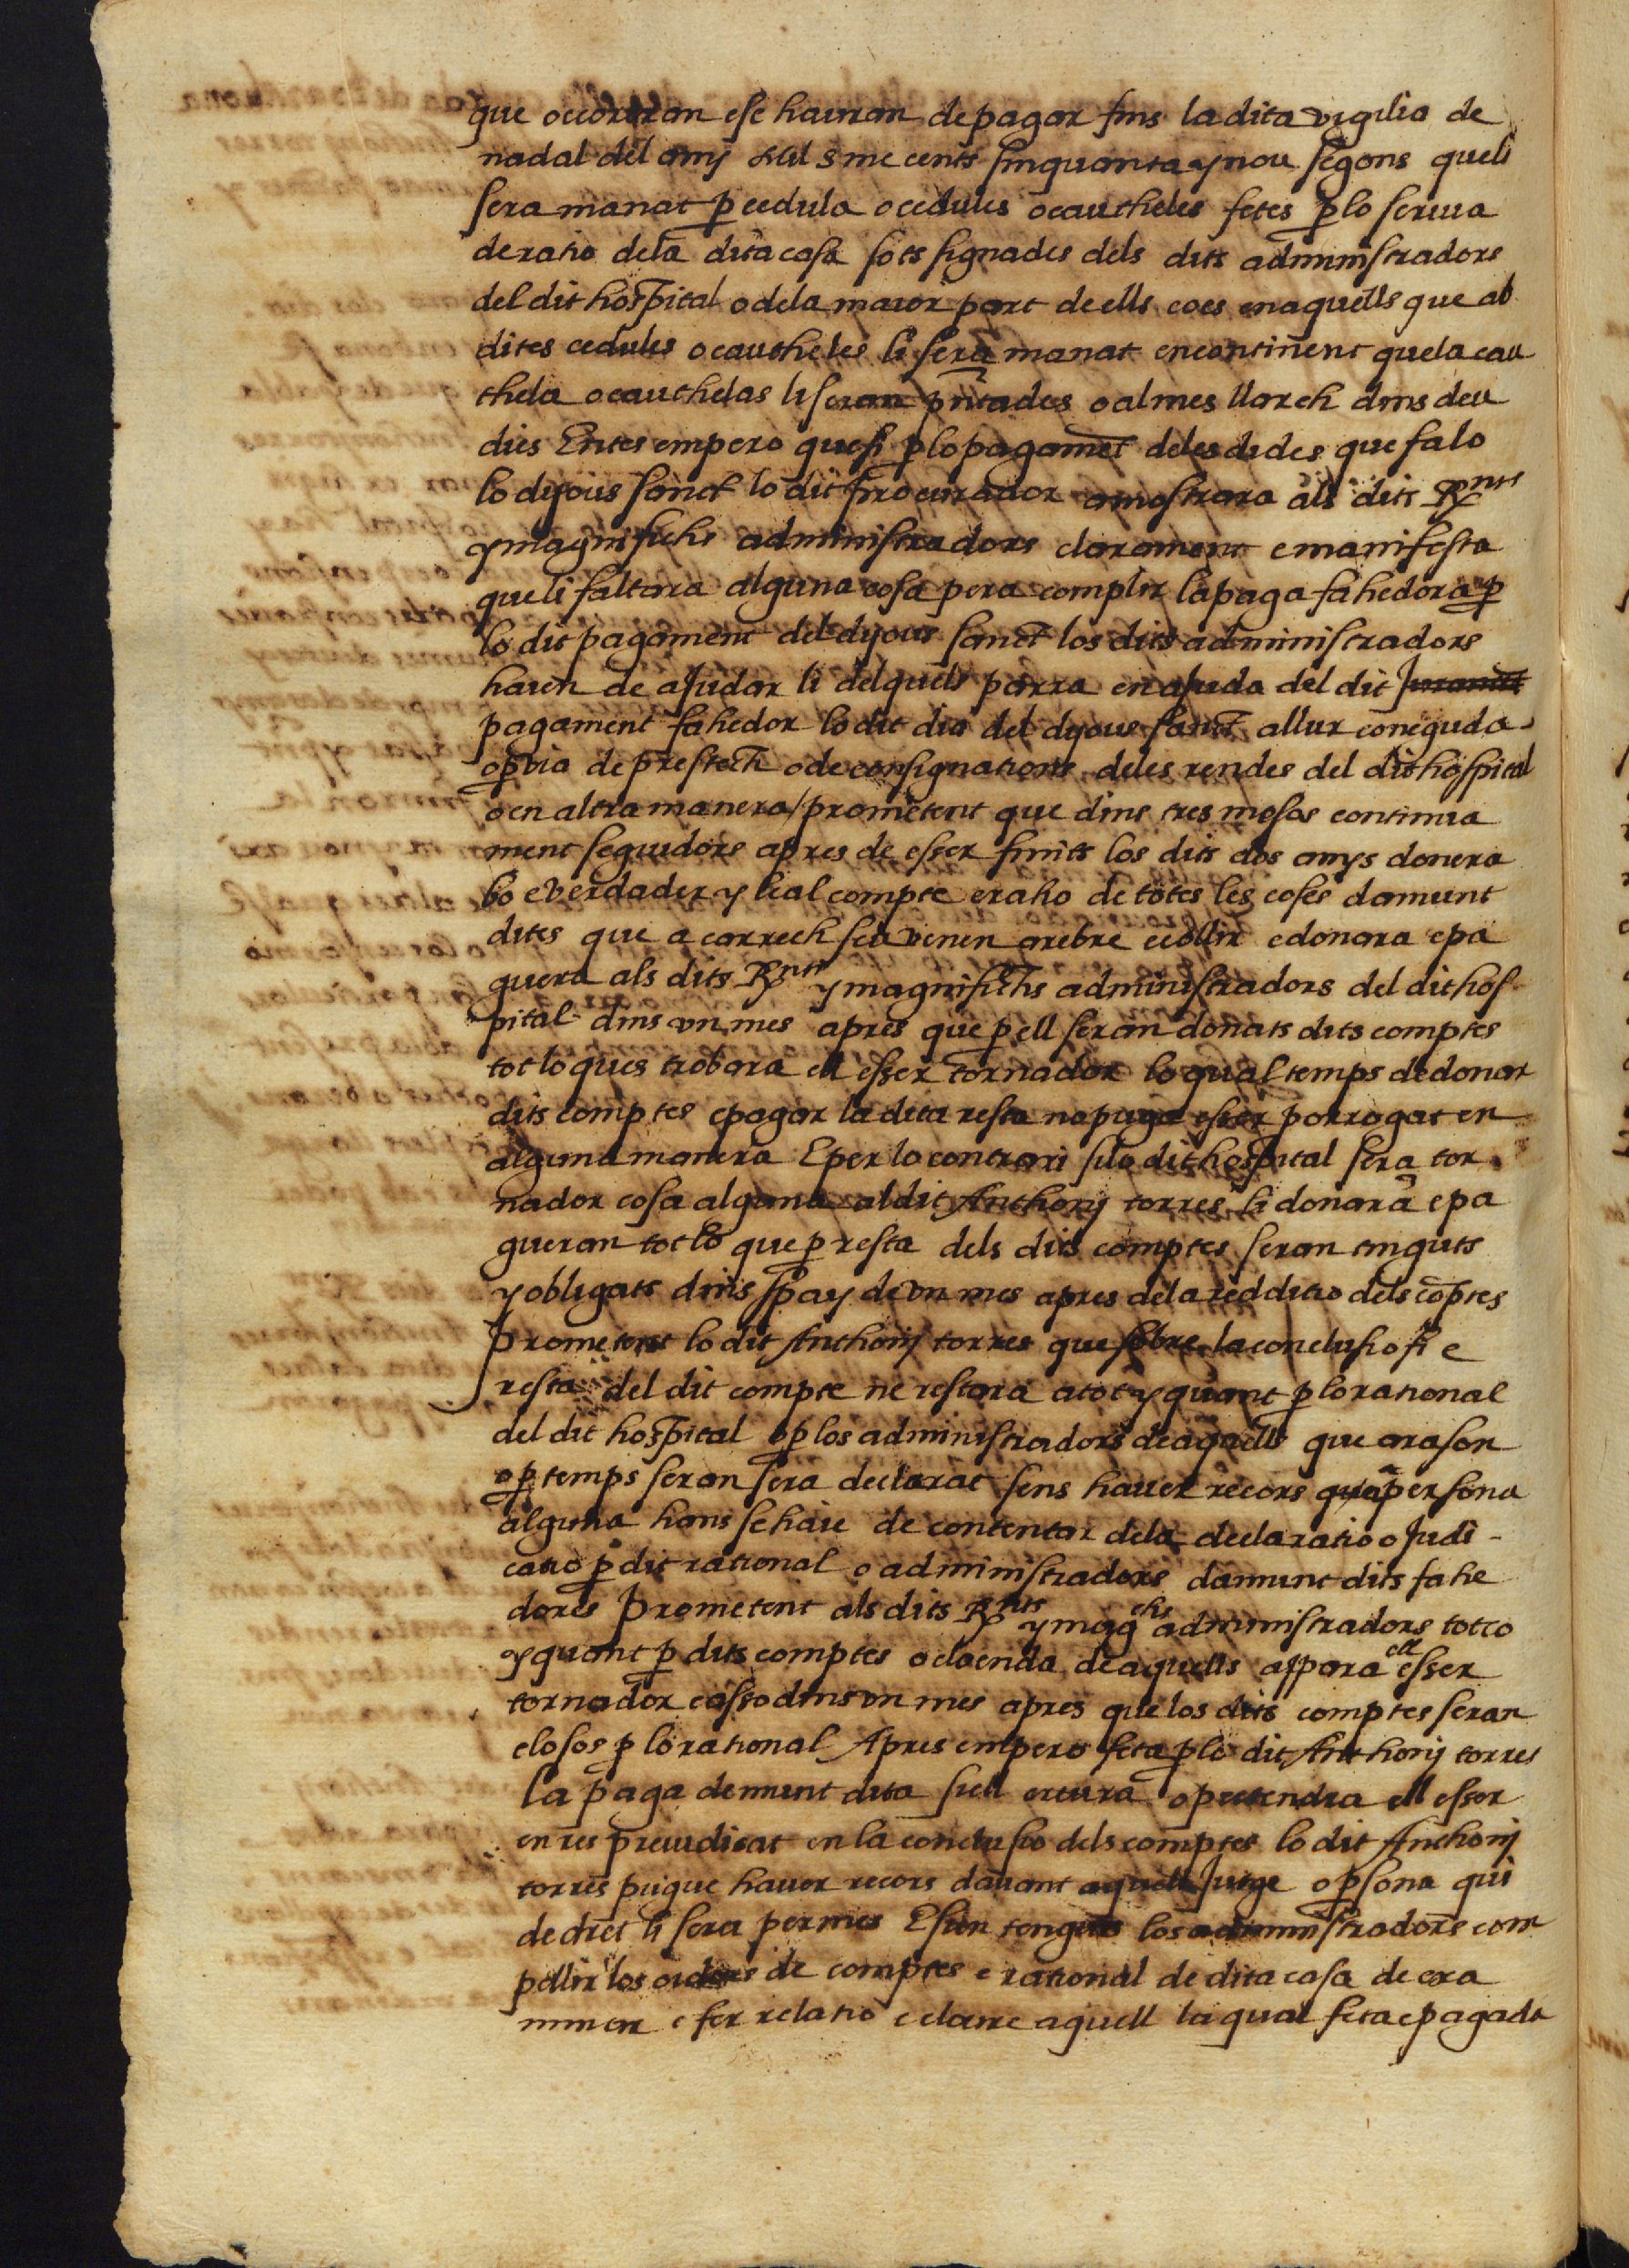 que occorreran e se hauran de pagar fins la dita vigilia de
nadal del any Mil sinc cents sinquanta y nou segons que li
sera manat p cedula o cedules o cautheles fetes p lo scriua
de ratio dela dita casa sots signades dels dits administradors
del dit hospital o dela maior part de ells co es en aquells que ab
dites cedules o cautheles li sera manat encontinent que la cau
thela o cauthelas li seran pntades o al mes llarch dins deu
dies Entes empero que si p lo pagamet deles dides que fa lo
lo dijous sanct lo dit procurador amostrara als dits Rnts
y magnifichs administradors clarament e manifesta
que li faltara alguna cosa pera complir la paga fahedora p
lo dit pagament del dijous sanct los dits administradors
hauen de aJudar li del quels parra en aJuda del dit
pagament fahedor lo dit dia del dijous sanct a llur coneguda
o p via de prestech o de consignations deles rendes del dit hospital
o en altra manera / prometent que dins tres mesos continua
ment seguidors apres de esser finits los dits dos anys donera
bo e verdader y leal compte e ratio de totes les coses damunt
dites que a carrech seu venen a rebre e collir e donara e pa
guera als dits Rnts y magnifichs administradors del dit hos
pital dins vn mes apres que p ell seran donats dits comptes
tot lo ques trobara ell esser tornador lo qual temps de donar
dits comptes e pagar la dita resta no puga esser porrogat en
alguna manera E per lo contrari si lo dit hospital sera tor
nador cosa alguna al dit Anthonij torres li donara e pa
gueran tot lo que p resta dels dits comptes seran tinguts
y obligats dins spay de vn mes apres dela redditio dels coptes
Prometent lo dit Anthonij torres que sobre la conclusio fi e
resta del dit compte ne restara a tot y quant p lo rational
del dit hospital o p los administradors de aquells que ara son
o p temps seran sera declarat sens hauer recors a persona
alguna hans se haie de contentar dela declaratio o Judi-
catio p dit rational o administradors damunt dits fahe
dores Prometent als dits Rnts y magchs administradors tot ço
y quant p dits comptes o cloenda de aquells appara ell esser
tornador e asso dins vn mes apres que los dits comptes seran
closos p lo rational Apres empero feta p lo dit Anthonij torres
la paga demunt dita si ell creura o pretendra ell esser
en res preiudicat en la conclusio dels comptes lo dit Anthonij
torres pugue hauer recors dauant aquell Jutge o psona qui
de dret li sera permes E sien tenguts los administradors com
pellir los oidors de comptes e rational de dita casa de exa
minar e fer relatio e cloure aquell la qual feta e pagada